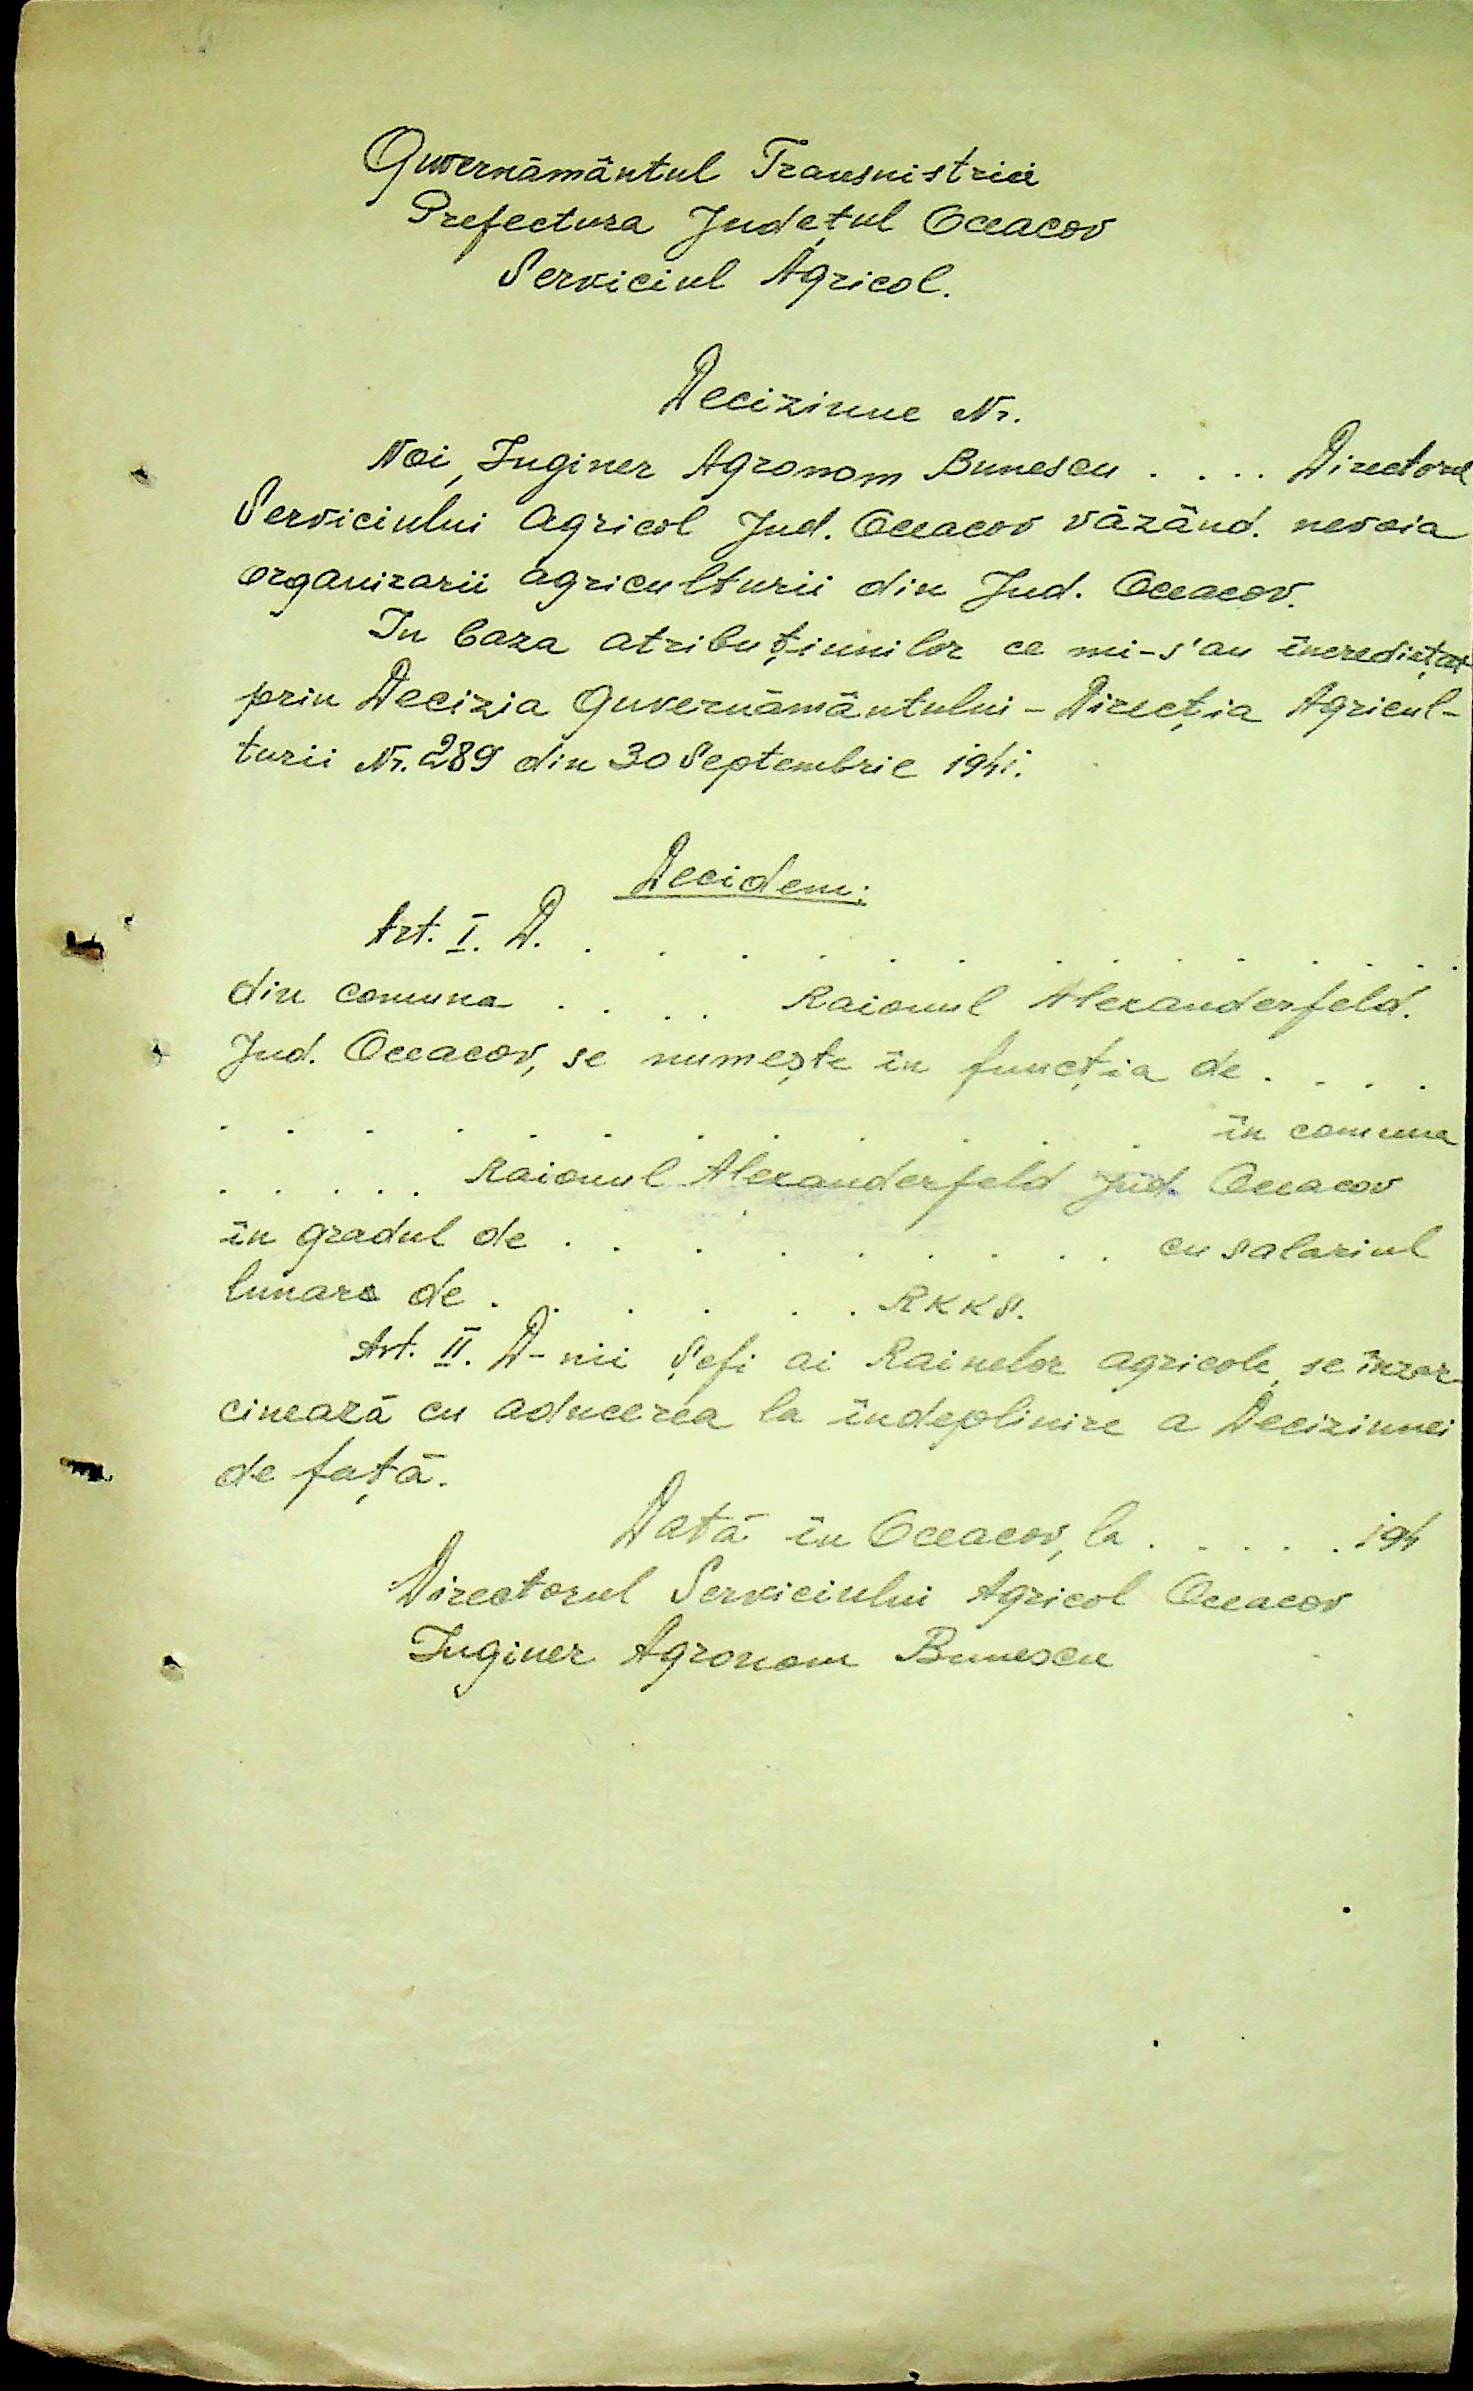 Guvernământul Transnistriei
Prefectura Județul Oceacov
Serviciul Agricol.
Deciziune Nr.
Noi, Inginer Agronom Bunescu . . . . Directorul
Serviciului Agricol Jud. Oceacov văzând. nevoia
organizarii agriculturii din Jud. Oceacov.
In baza atribuțiunilor ce mi-s'au încredințat
prin Decizia Guvernământului - Direcția Agricul-
turii Nr. 289 din 30 Septembrie 1941.
Decidem:
Art. I. D. . . . . . . . . . . . . .
din comuna . . . . Raionul Alexanderfeld.
Jud. Oceacov, se numește în funcția de . . . .
. . . . . . . . . . . . în comuna
. . . . . Raionul Alexanderfeld Jud. Oceacov
în gradul de . . . . . . . . . cu salariul
lunare de . . . . . . RKKS.
Art. II. D-nii Șefi ai Rainelor agricole, se înzar-
cinează cu aducerea la îndeplinire a Deciziunei
de față.
Dată în Oceacov, la . . . . . 194
Directorul Serviciului Agricol Oceacov
Inginer Agronom Bunescu